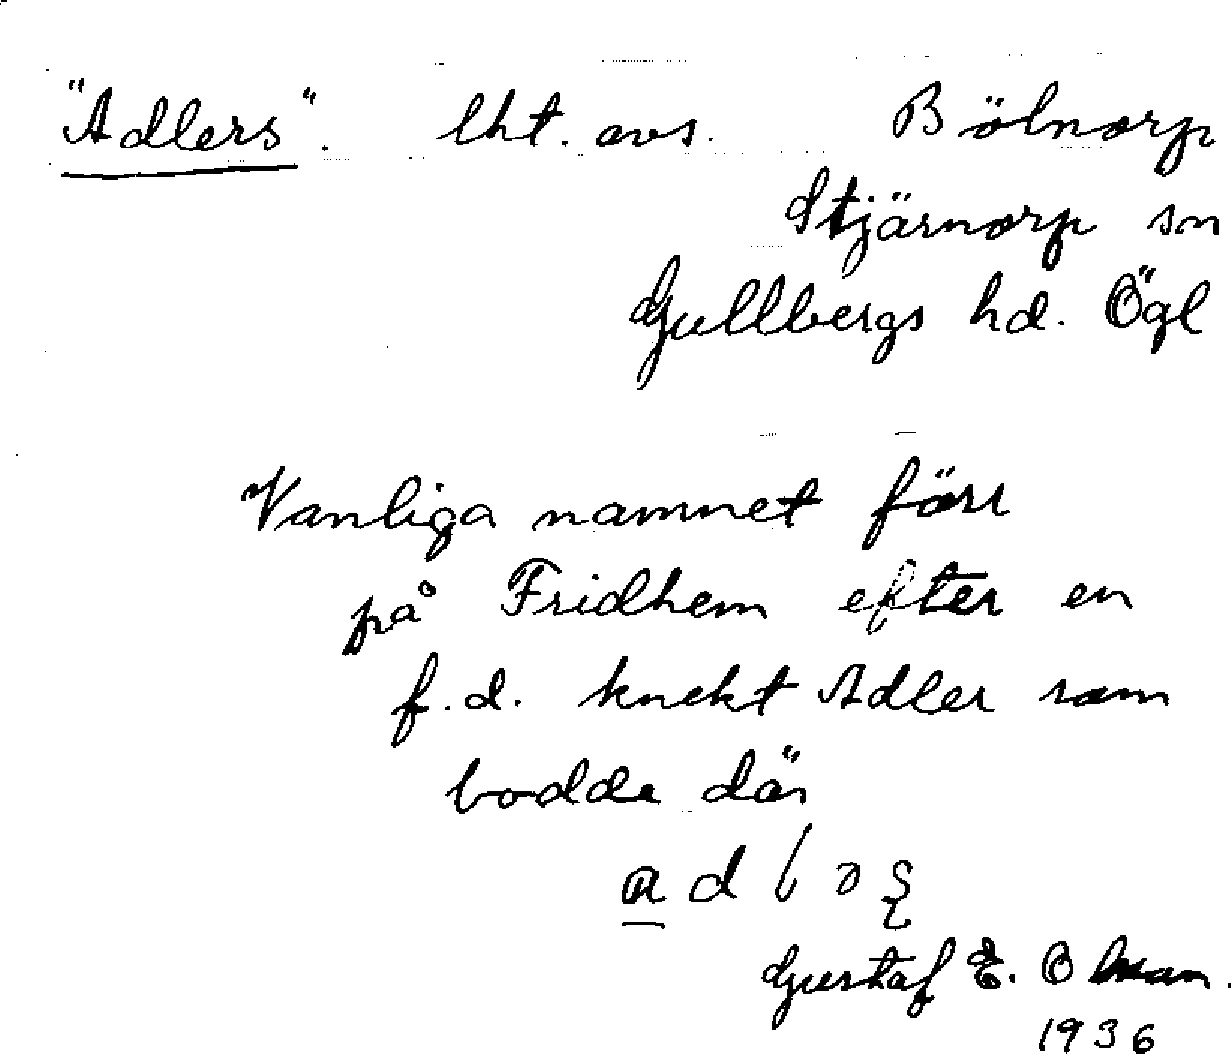 "Adlers". lht. avs. Bölnorp
Stjärnorp sn
Gullbergs hd. Ögl
Vanliga namnet förr
på Fridhem efter en
f.d. knekt Adler som
bodde där
Gustaf E. Olsson.
1936